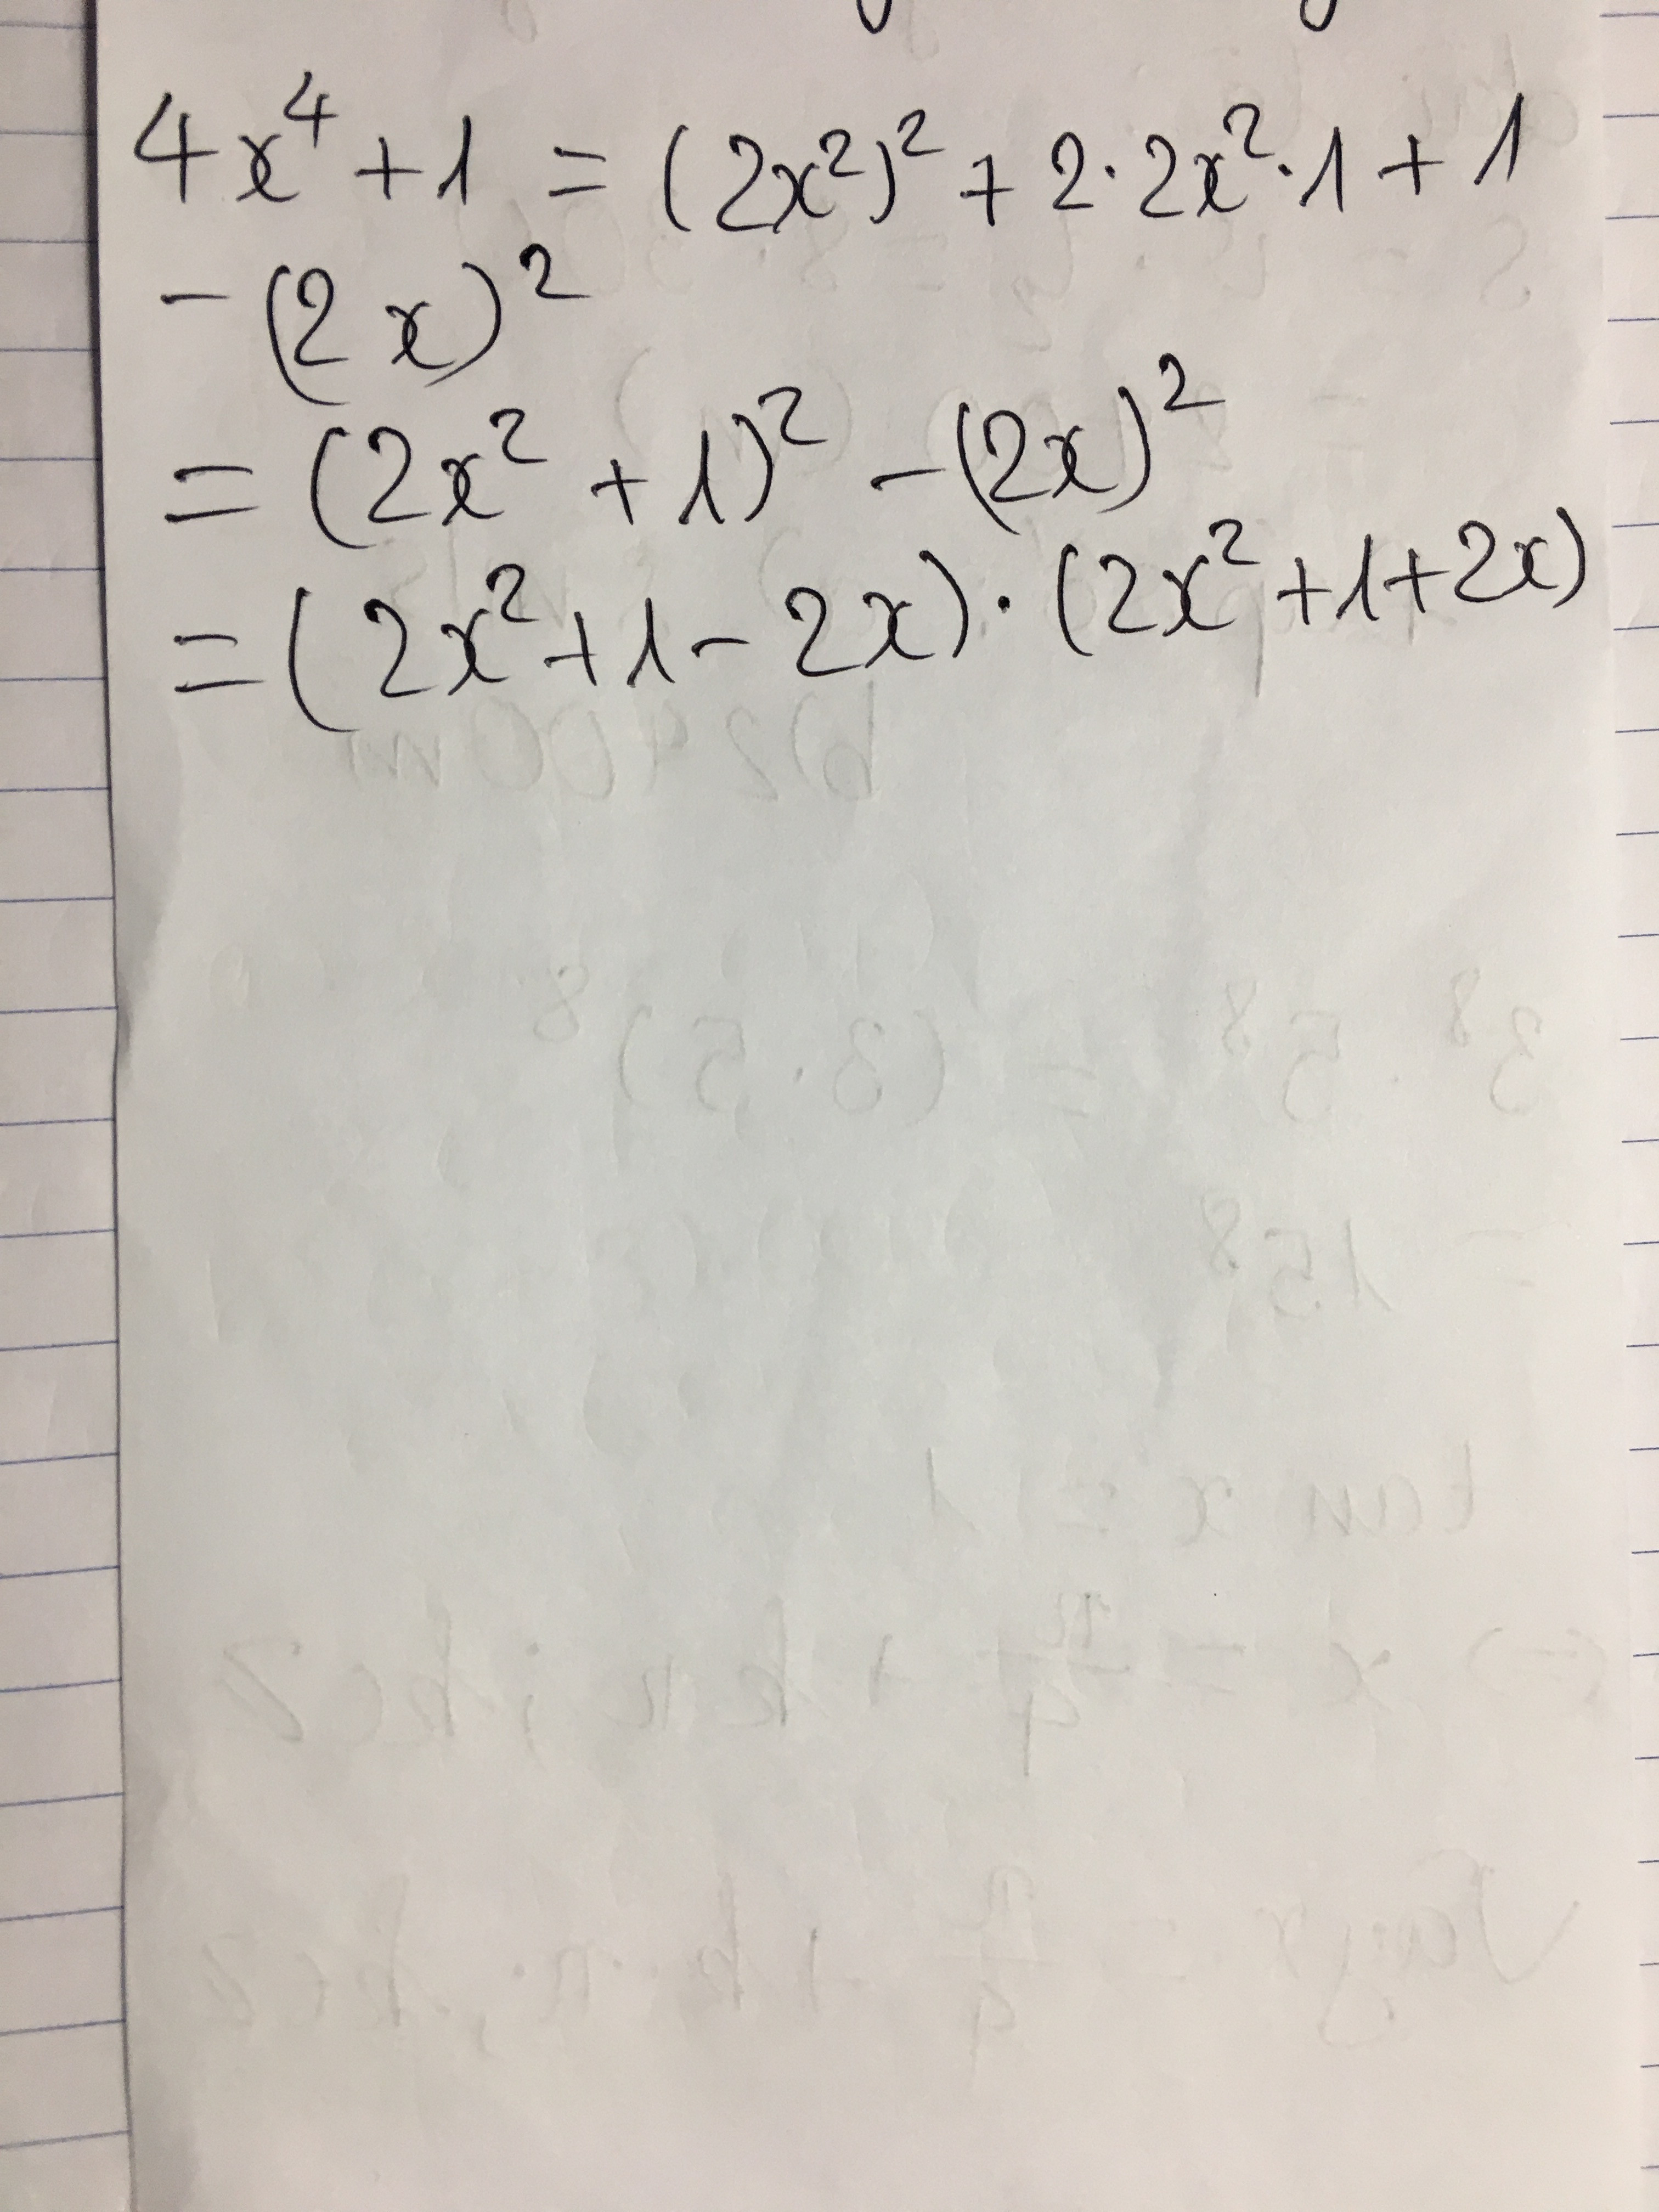 4x⁴ + 1 = (2x²)² + 2·2x²·1 + 1
- (2x)²
= (2x² + 1)² - (2x)²
= (2x² + 1 - 2x)·(2x² + 1 + 2x)